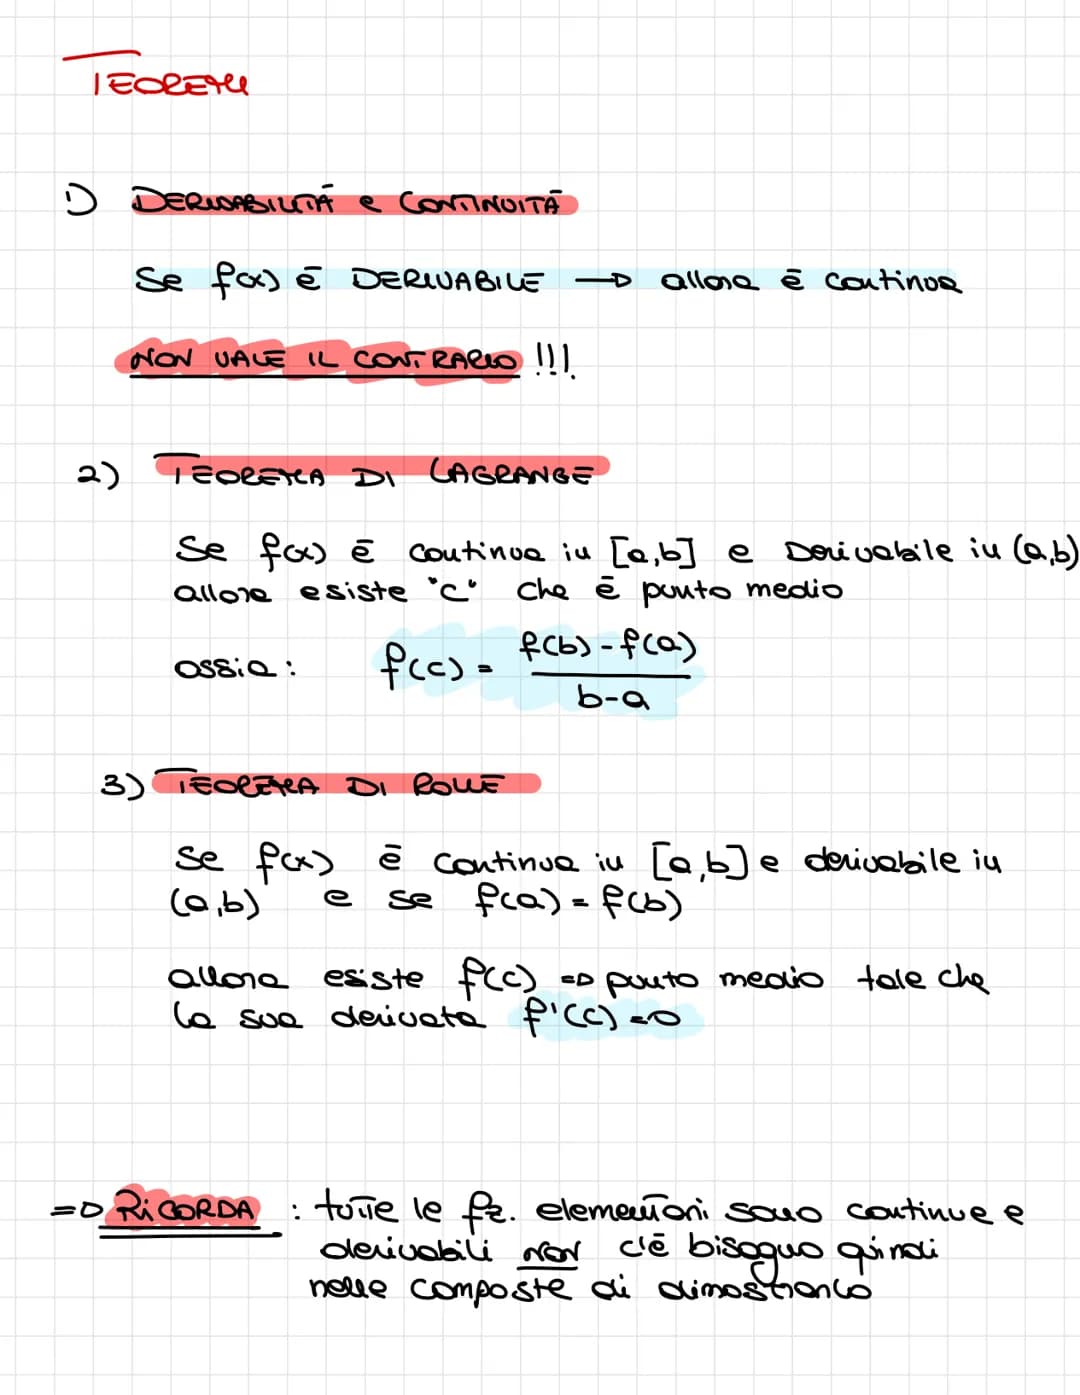 TEOREMI
1) DERIVABILITÀ e CONTINUITÀ
Se f(x) è DERIVABILE → allora è continua
NON VALE IL CONTRARIO !!!
2) TEOREMA DI LAGRANGE
Se f(x) è continua in [a,b] e Derivabile in (a,b)
allora esiste "c" che è punto medio
ossia: f(c) = f(b)-f(a) / b-a
3) TEOREMA DI ROLLE
Se f(x) è continua in [a,b] e derivabile in
(a,b) e se f(a) = f(b)
allora esiste f(c) => punto medio tale che
la sua derivata f'(c) = 0
=> RICORDA : tutte le fz. elementari sono continue e
derivabili NON c'è bisogno quindi
nelle composte di dimostrarlo